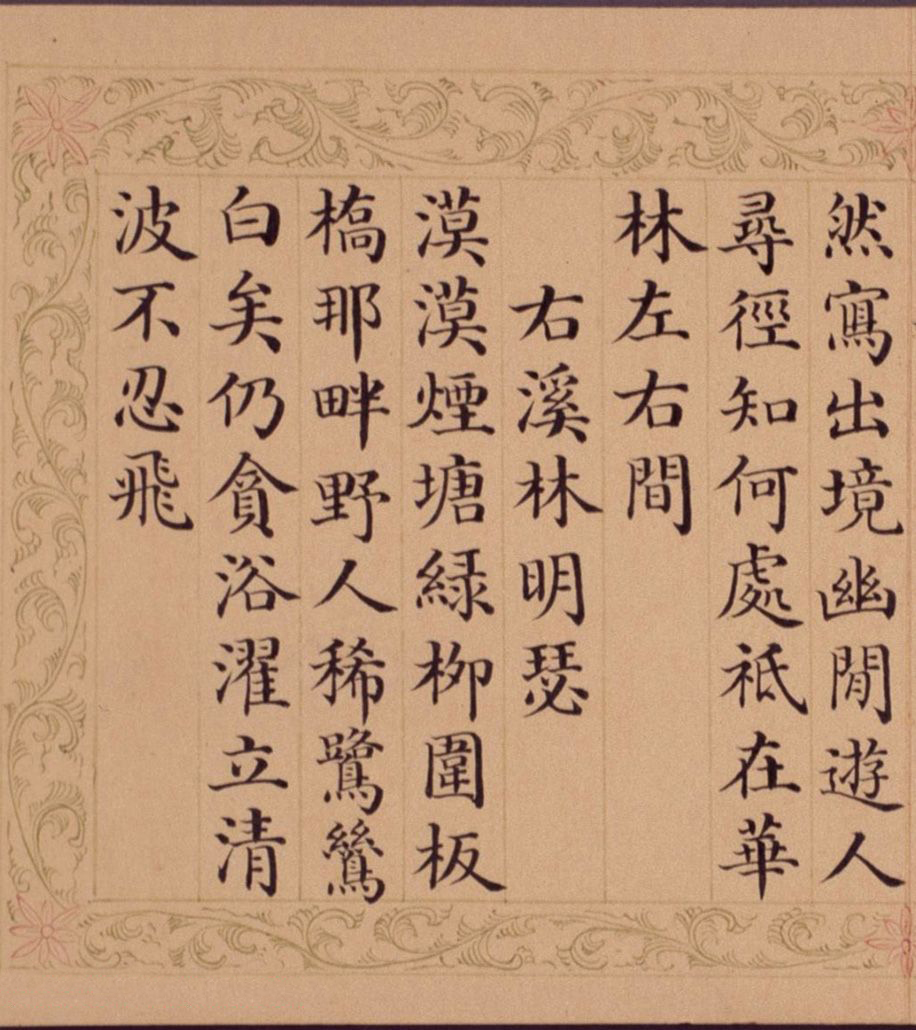 然寫出境幽閒遊人
尋徑知何處祇在華
林左右間
右溪林明瑟
漠漠煙塘緑柳圍板
橋那畔野人稀鷺鷥
白矣仍貪浴濯立清
波不忍飛